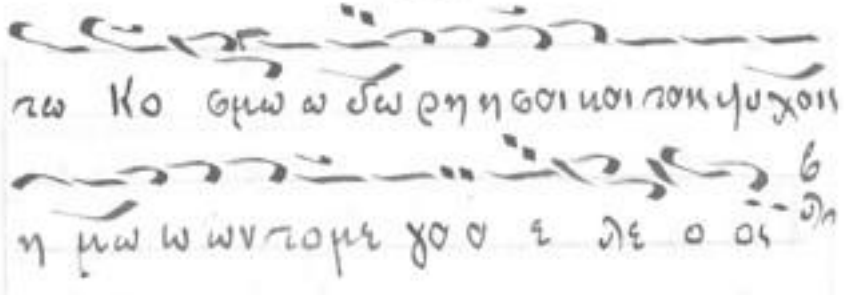 τω Κο σμω ω δω ρη η σαι και ταις ψυ χαις
η μω ω ων το με γα α ε λε ο ος